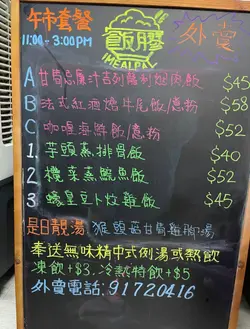 午市套餐
11:00-3:00PM
飯膠
IHEALPA
外賣
A 甘筍忌廉汁吉列 飯 $45
B 法式紅酒燴牛尾飯/意粉 $58
C 咖喱海鮮飯/意粉 $52
1. 芋頭蒸排骨飯 $40
2. 欖菜蒸鯇魚飯 $52
3. 蠔皇豆卜炆雞飯 $45
是日靚湯 猴頭菇甘筍雞腳湯
奉送無味精中式例湯或熱飲
凍飲+$3. 冷熱特飲+$5
外賣電話: 91720416